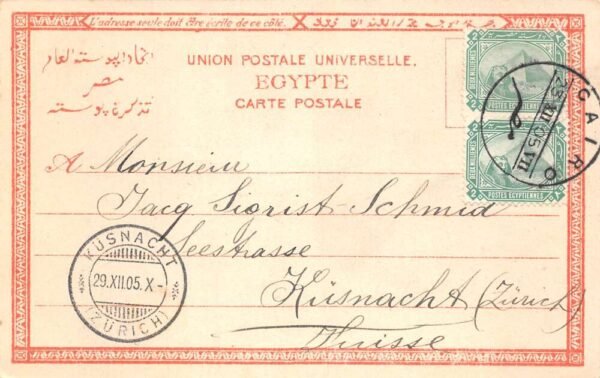 L'adresse seule doit être écrite de ce côté.
UNION POSTALE UNIVERSELLE.
EGYPTE
CARTE POSTALE
مصر
DEUX MILLIEMES
2
POSTES EGYPTIENNES
DEUX MILLIEMES
2
POSTES EGYPTIENNES
CAIRO
XII 05 VII
A Monsieur
Jacq Sigrist-Schmid
Seestrasse
Küsnacht (Zürich)
Suisse
KÜSNACHT
29.XII.05.X-
(ZÜRICH)